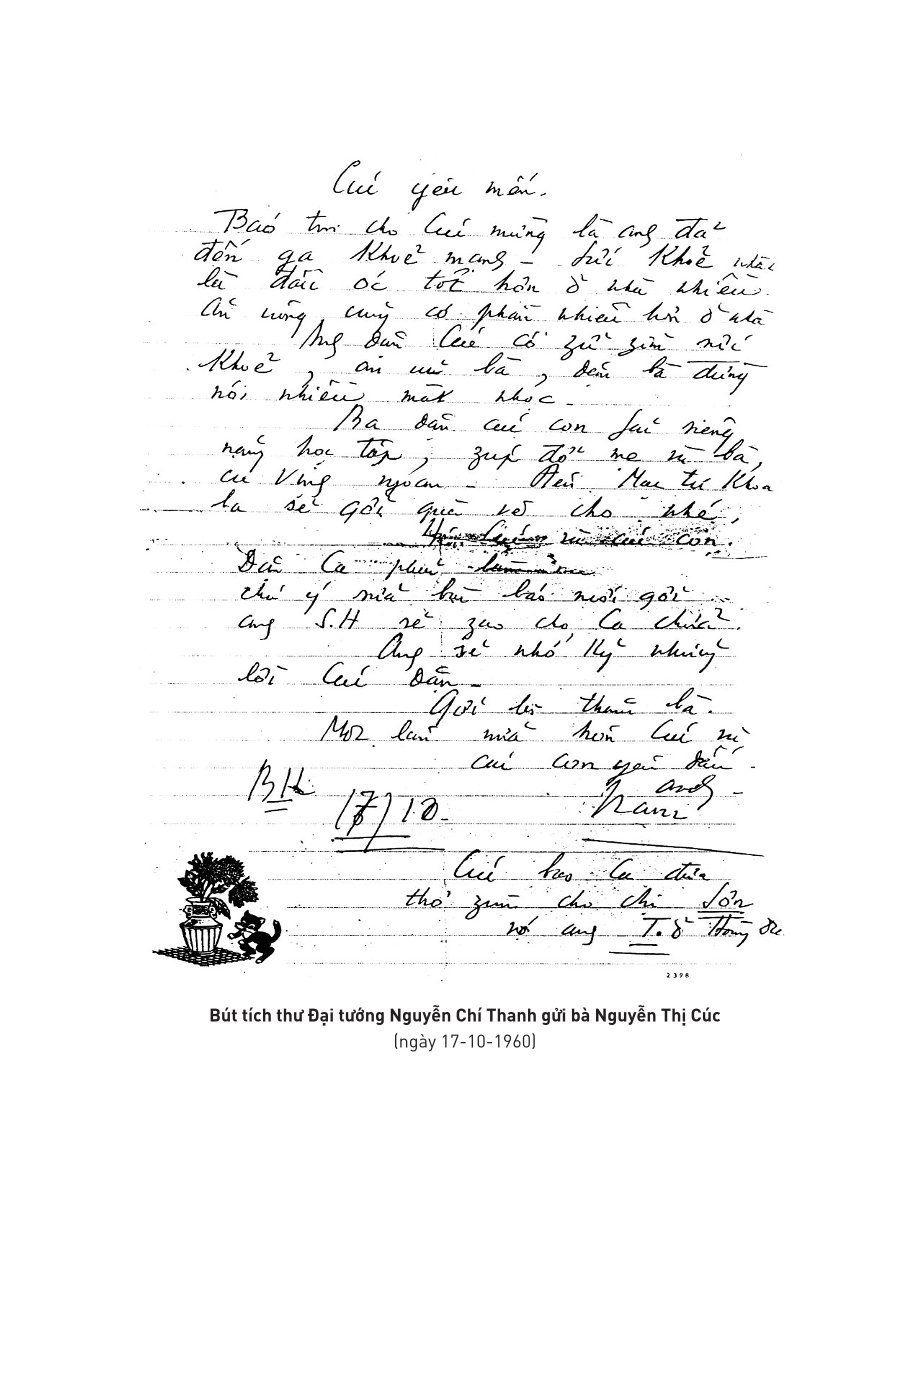 Cúc yêu mến.
Báo tin cho Cúc mừng là ang đã
đến ga khoẻ mang – sức khoẻ nhất
là đầu óc tốt hơn ở nhà nhiều.
Ăn uống cũng có phần nhiều hơn ở nhà
Ang dặn Cúc cố zữ zìn sức
khoẻ, ăn bà, đêm là đừng
nói nhiều mất nhọc.
Ba dặn các con fải siêng
năng học tập, zúp đỡ mẹ và bà,
cư ngoan – Đến Mac tư khoa
ba sẽ gởi quà về cho nhé,
và các con.
Dặn Ca phải
chú ý sữa báo mới gởi
ang S.H sẽ zao cho Ca chữa.
Ang sẽ nhớ kỹ những
lời Cúc dặn –
Gởi lời thăm bà.
Một lần nữa hôn Cúc và
các con yêu dấu.
ang –
BK
17/10.
Cúc bao Ca đưa
thơ zùm cho chị Sơn
vợ ang T. ở
2398
Bút tích thư Đại tướng Nguyễn Chí Thanh gửi bà Nguyễn Thị Cúc
(ngày 17-10-1960)